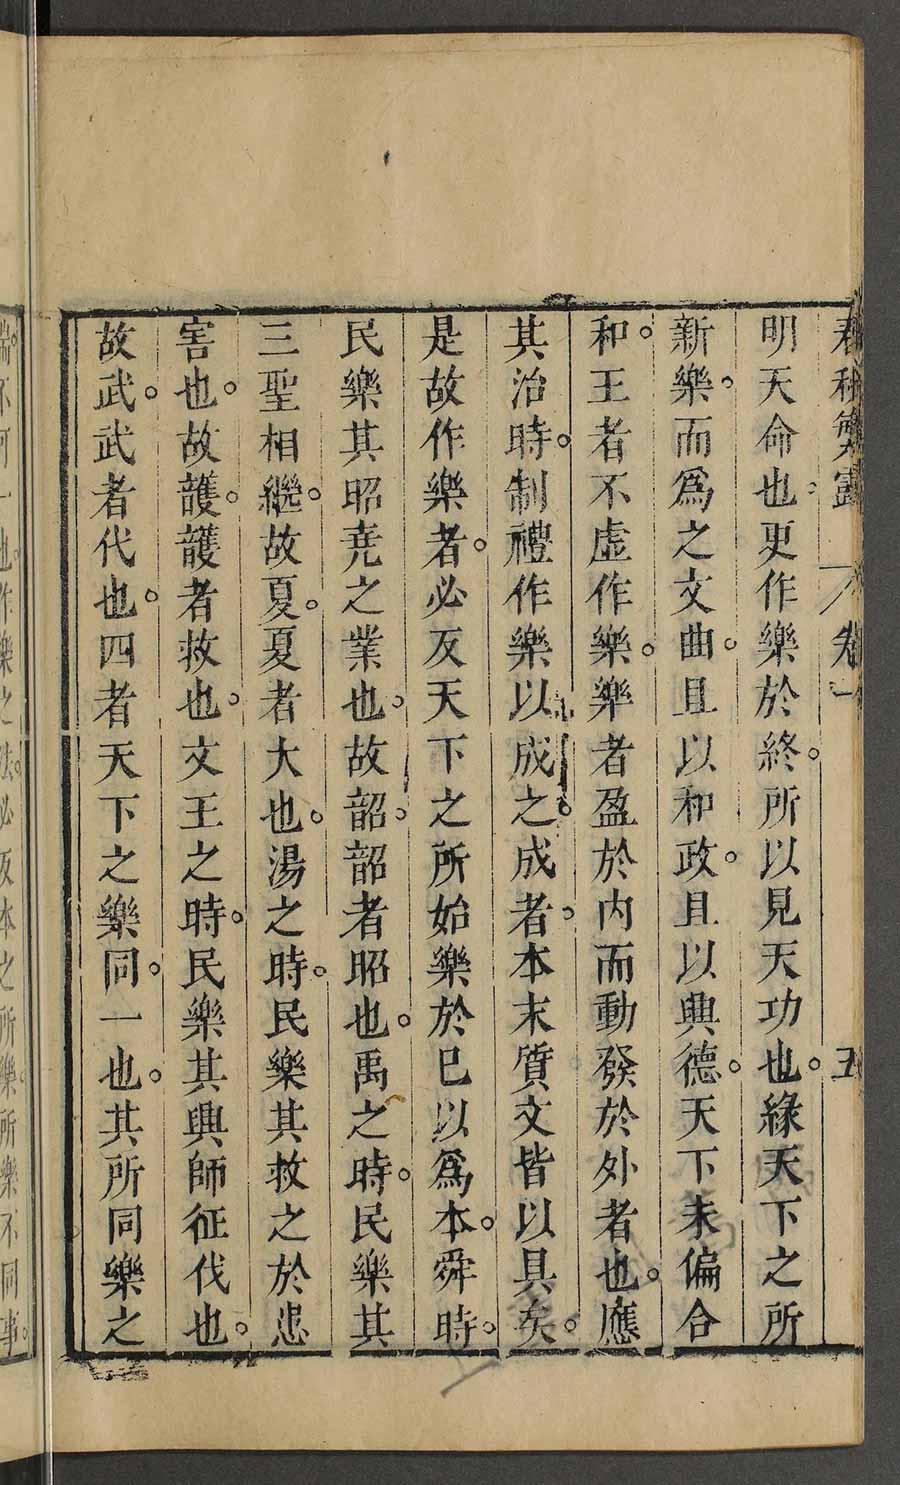 春秋繁露 卷一 五
明天命也更作樂於終。所以見天功也。緣天下之所
新樂。而爲之文曲。且以和政。且以興德。天下未偏合
和。王者不虛作樂。樂者盈於內而動發於外者也。應
其治時。制禮作樂以成之。成者。本末質文皆以具矣。
是故作樂者。必反天下之所始樂於已以爲本。舜時。
民樂其昭堯之業也。故韶。韶者昭也。禹之時。民樂其
三聖相繼。故夏。夏者大也。湯之時。民樂其救之於患
害也。故頀。頀者救也。文王之時。民樂其興師征伐也。
故武。武者伐也。四者天下之樂同。一也。其所同樂之
端不可一也。作樂之法。必反本之所樂。所樂不同事。